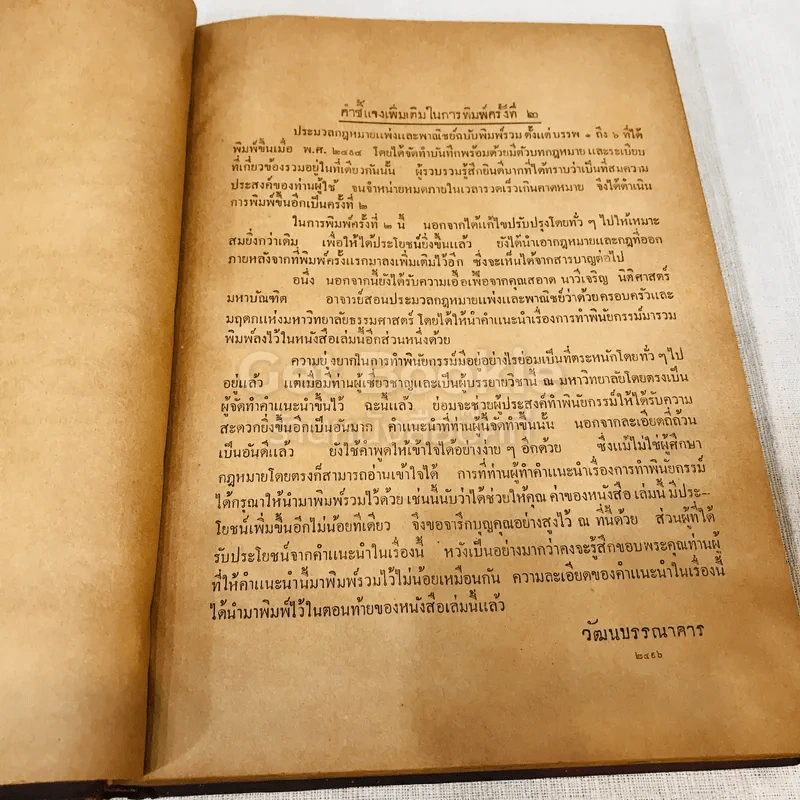 คำชี้แจงเพิ่มเติมในการพิมพ์ครั้งที่ ๒
ประมวลกฎหมายแพ่งและพาณิชย์ฉบับพิมพ์รวม ตั้งแต่บรรพ ๑ ถึง ๖ ที่ได้
พิมพ์ขึ้นเมื่อ พ.ศ. ๒๔๙๔ โดยได้จัดทำบันทึกพร้อมด้วยมีตัวบทกฎหมาย และระเบียบ
ที่เกี่ยวข้องรวมอยู่ในที่เดียวกันนั้น ผู้รวบรวมรู้สึกยินดีมากที่ได้ทราบว่าเป็นที่สมความ
ประสงค์ของท่านผู้ใช้ จนจำหน่ายหมดภายในเวลารวดเร็วเกินคาดหมาย จึงได้ดำเนิน
การพิมพ์ขึ้นอีกเป็นครั้งที่ ๒
ในการพิมพ์ครั้งที่ ๒ นี้ นอกจากได้แก้ไขปรับปรุงโดยทั่ว ๆ ไปให้เหมาะ
สมยิ่งกว่าเดิม เพื่อให้ได้ประโยชน์ยิ่งขึ้นแล้ว ยังได้นำเอากฎหมายและกฎที่ออก
ภายหลังจากที่พิมพ์ครั้งแรกมาลงเพิ่มเติมไว้อีก ซึ่งจะเห็นได้จากสารบาญต่อไป
อนึ่ง นอกจากนี้ยังได้รับความเอื้อเฟื้อจากคุณสอาด นาวีเจริญ นิติศาสตร์
มหาบัณฑิต อาจารย์สอนประมวลกฎหมายแพ่งและพาณิชย์ว่าด้วยครอบครัวและ
มฤดกแห่งมหาวิทยาลัยธรรมศาสตร์ โดยได้ให้นำคำแนะนำเรื่องการทำพินัยกรรม์มารวม
พิมพ์ลงไว้ในหนังสือเล่มนี้อีกส่วนหนึ่งด้วย
ความยุ่งยากในการทำพินัยกรรม์มีอยู่อย่างไรย่อมเป็นที่ตระหนักโดยทั่ว ๆ ไป
อยู่แล้ว แต่เมื่อมีท่านผู้เชี่ยวชาญและเป็นผู้บรรยายวิชานี้ ณ มหาวิทยาลัยโดยตรงเป็น
ผู้จัดทำคำแนะนำขึ้นไว้ ฉะนี้แล้ว ย่อมจะช่วยผู้ประสงค์ทำพินัยกรรม์ให้ได้รับความ
สะดวกยิ่งขึ้นอีกเป็นอันมาก คำแนะนำที่ท่านผู้นี้จัดทำขึ้นนั้น นอกจากละเอียดถี่ถ้วน
เป็นอันดีแล้ว ยังใช้คำพูดให้เข้าใจได้อย่างง่าย ๆ อีกด้วย ซึ่งแม้ไม่ใช่ผู้ศึกษา
กฎหมายโดยตรงก็สามารถอ่านเข้าใจได้ การที่ท่านผู้ทำคำแนะนำเรื่องการทำพินัยกรรม์
ได้กรุณาให้นำมาพิมพ์รวมไว้ด้วย เช่นนี้นับว่าได้ช่วยให้คุณ ค่าของหนังสือ เล่มนี้ มีประ-
โยชน์เพิ่มขึ้นอีกไม่น้อยทีเดียว จึงขอจารึกบุญคุณอย่างสูงไว้ ณ ที่นี้ด้วย ส่วนผู้ที่ได้
รับประโยชน์จากคำแนะนำในเรื่องนี้ หวังเป็นอย่างมากว่าคงจะรู้สึกขอบพระคุณท่านผู้
ที่ให้คำแนะนำนี้มาพิมพ์รวมไว้ไม่น้อยเหมือนกัน ความละเอียดของคำแนะนำในเรื่องนี้
ได้นำมาพิมพ์ไว้ในตอนท้ายของหนังสือเล่มนี้แล้ว
วัฒนบรรณาคาร
๒๔๙๖